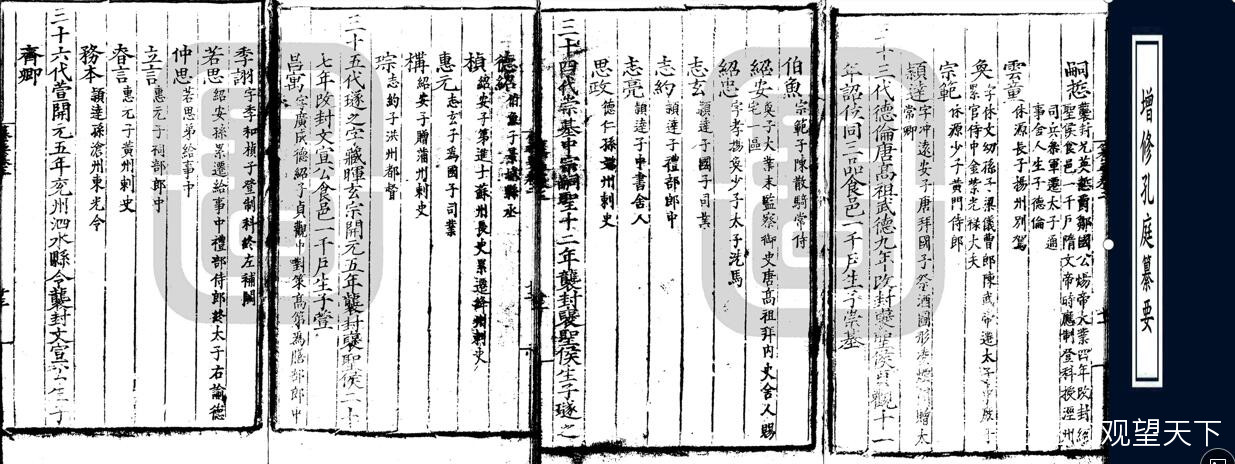 增修孔庭纂要
嗣悊
襲封兄英悊爵鄒國公煬帝大業四年改封紹
聖侯食邑一千戶隋文帝時應制登科授涇州
司兵參軍遷太子通
事舍人生子德倫
雲童
休源長子揚州別駕
奐
字休文幼孫子梁儀曹郎陳武帝遷太子
累官侍中金紫光祿大夫
宗範
休源少子黃門侍郎
穎達
字冲遠安子唐拜國子祭酒圖形凌煙閣贈太
常卿
三十三代德倫唐高祖武德九年改封褒聖侯貞觀十一
年詔伎同三品食邑一千戶生子崇基
伯魚
宗範子陳散騎常侍
紹安
奐子大業末監察御史唐高祖拜內史舍人賜
宅一區
紹忠
字孝揚奐少子太子洗馬
志玄
穎達子國子司業
志約
穎達子禮部郎中
志亮
穎達子中書舍人
思政
德仁孫瀛州刺史
三十四代崇基中宗嗣聖十二年襲封褒聖侯生子璲之
德紹
伯魚子景城縣丞
楨
紹安子第進士蘇州長史累遷絳州刺史
惠元
志玄子為國子司業
構
紹安子贈蒲州刺史
琮
志約子洪州都督
三十五代璲之字藏暉玄宗開元五年襲封褒聖侯二十
七年改封文宣公食邑一千戶生子萱
昌寓
字廣成德紹子貞觀中對策高第為膳部郎中
季詡
字季和楨子登制科終左補闕
若思
紹安孫累遷給事中禮部侍郎終太子右諭德
仲思
若思弟給事中
立言
惠元子祠部郎中
春言
惠元子黃州刺史
務本
穎達孫滄州東光令
三十六代萱開元五年兗州泗水縣令襲封文宣公生子
齊卿
观望天下